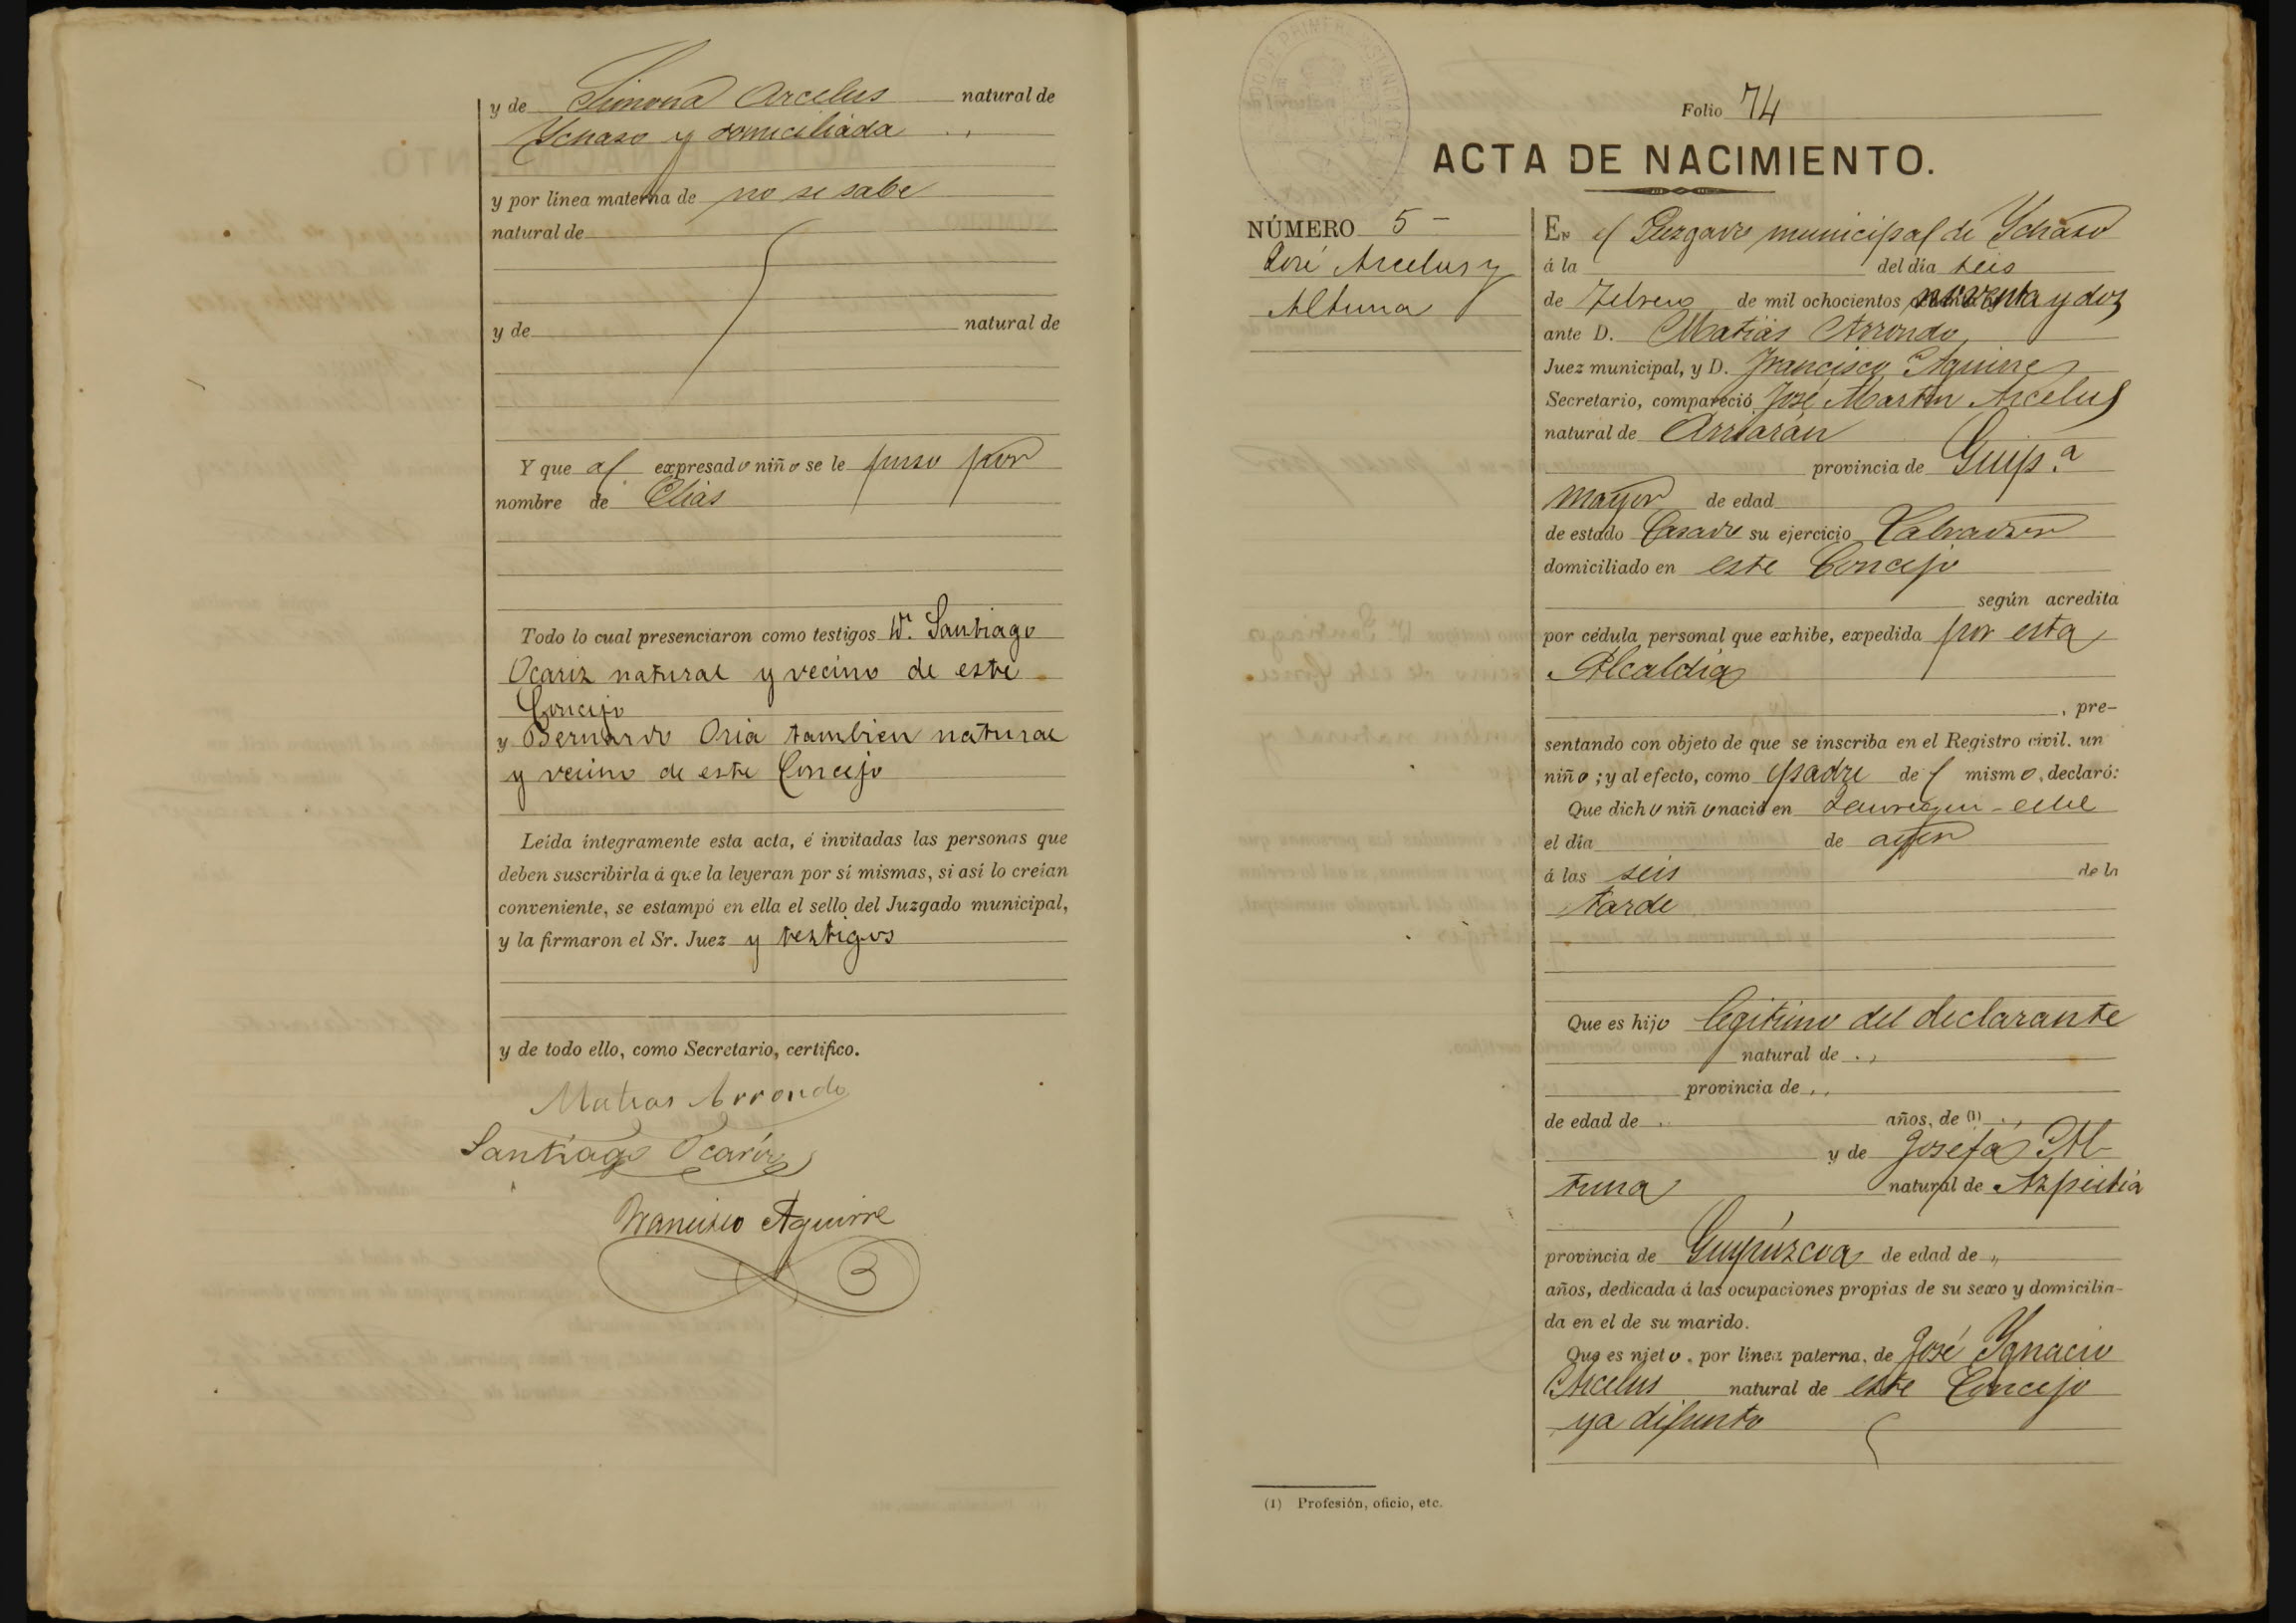 y de Simona Arcelus natural de
Ychaso y domiciliada . ,
y por línea materna de no se sabe
natural de
y de natural de
Y que al expresado niño se le puso por
nombre de Elias
Todo lo cual presenciaron como testigos Santiago
Ocariz natural y vecino de este
Concejo
y Bernardo Oria tambien natural
y vecino de este Concejo
Leída íntegramente esta acta, é invitadas las personas que
deben suscribirla á que la leyeran por sí mismas, si así lo creían
conveniente, se estampó en ella el sello del Juzgado municipal,
y la firmaron el Sr. Juez y testigos
y de todo ello, como Secretario, certifico.
Matias Arrondo
Santiago Ocariz
Francisco Aguirre
Folio 74
ACTA DE NACIMIENTO.
NÚMERO 5 -
José Arcelus y
Altuna
En el Juzgado municipal de Ychaso
á la del día seis
de Febrero de mil ochocientos noventa y dos
ante D. Matias Arrondo
Juez municipal, y D. Francisco Aguirre
Secretario, compareció José Martin Arcelus
natural de Arriarán
provincia de Guip.a
mayor de edad
de estado Casado su ejercicio Labrador
domiciliado en este Concejo
según acredita
por cédula personal que exhibe, expedida por esta
Alcaldia
, pre-
sentando con objeto de que se inscriba en el Registro civil. un
niño ; y al efecto, como padre del mismo, declaró:
Que dicho niño nació en
el día de ayer
á las seis de la
tarde
Que es hijo legitimo del declarante
natural de . ,
provincia de . .
de edad de . años, de (1) .
y de Josefa Al-
tuna natural de Azpeitia
provincia de Guipúzcoa de edad de „
años, dedicada á las ocupaciones propias de su sexo y domicilia-
da en el de su marido.
Que es nieto, por línea paterna, de José Ygnacio
Arcelus natural de este Concejo
ya difunto
(1) Profesión, oficio, etc.